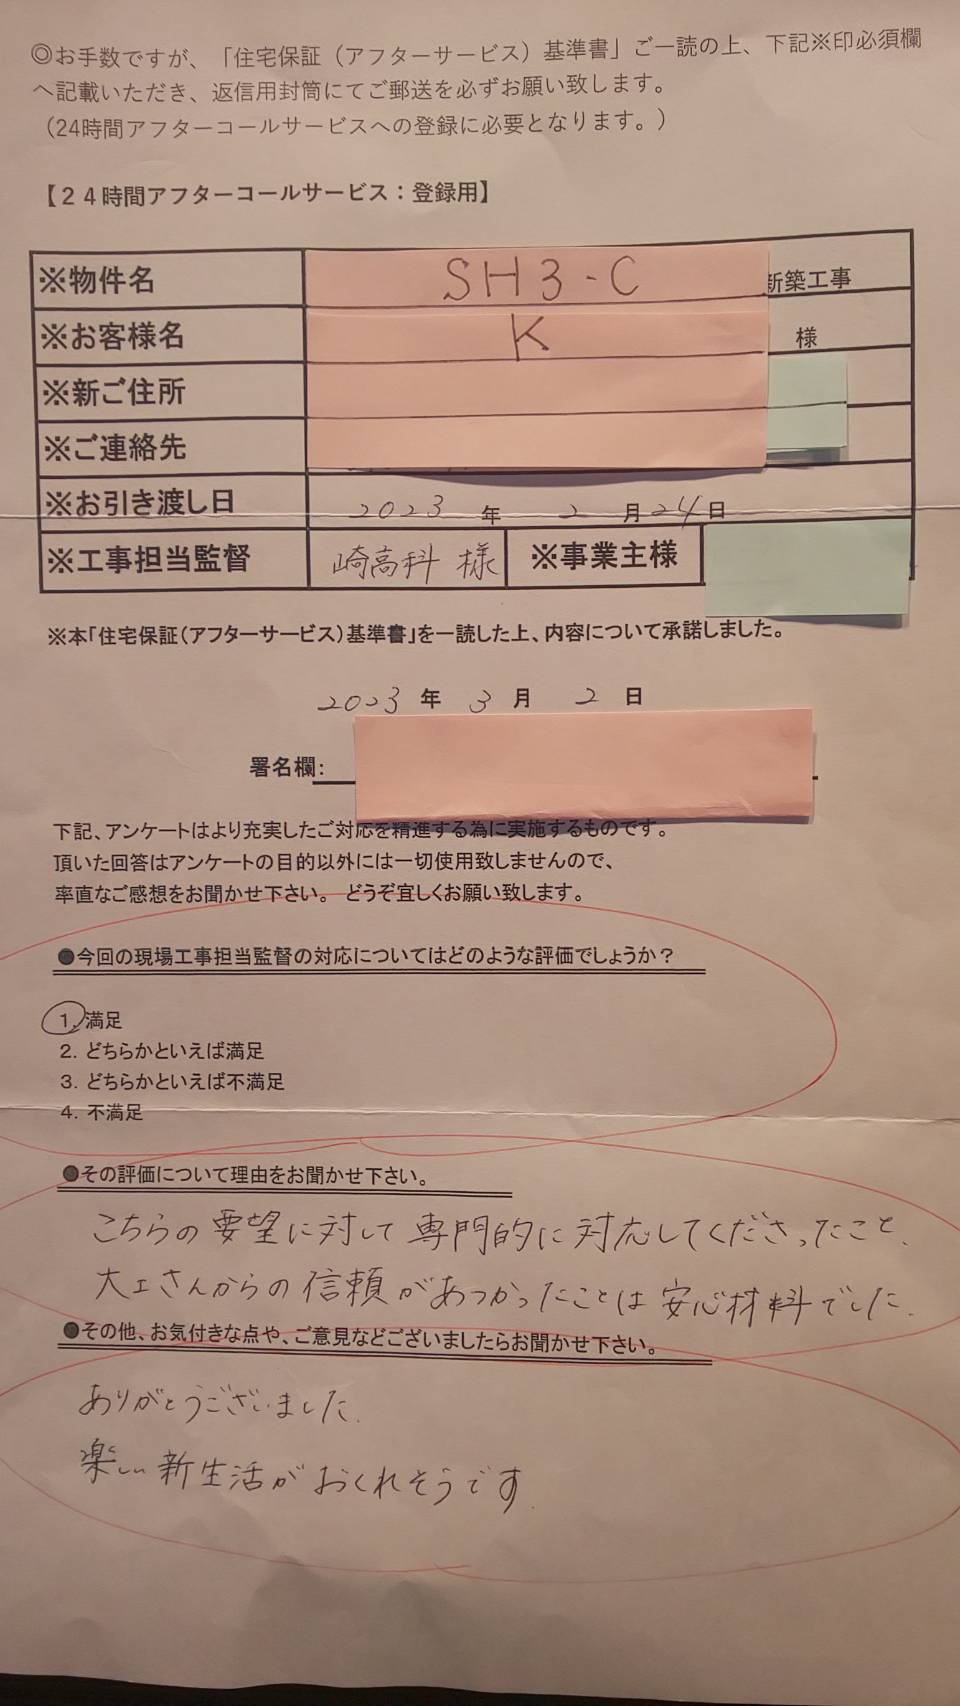 ◎お手数ですが、「住宅保証（アフターサービス）基準書」ご一読の上、下記※印必須欄
へ記載いただき、返信用封筒にてご郵送を必ずお願い致します。
（24時間アフターコールサービスへの登録に必要となります。）
【24時間アフターコールサービス：登録用】
※物件名 SH3-C 新築工事
※お客様名 K 様
※新ご住所
※ご連絡先
※お引き渡し日 2023 年 2 月 24 日
※工事担当監督 崎高科 様 ※事業主様
※本「住宅保証（アフターサービス）基準書」を一読した上、内容について承諾しました。
2023 年 3 月 2 日
署名欄：
下記、アンケートはより充実したご対応を精進する為に実施するものです。
頂いた回答はアンケートの目的以外には一切使用致しませんので、
率直なご感想をお聞かせ下さい。 どうぞ宜しくお願い致します。
●今回の現場工事担当監督の対応についてはどのような評価でしょうか？
1. 満足
2. どちらかといえば満足
3. どちらかといえば不満足
4. 不満足
●その評価について理由をお聞かせ下さい。
こちらの要望に対して専門的に対応してくださったこと、
大工さんからの信頼があつかったことは安心材料でした。
●その他、お気付きな点や、ご意見などございましたらお聞かせ下さい。
ありがとうございました。
楽しい新生活がおくれそうです。